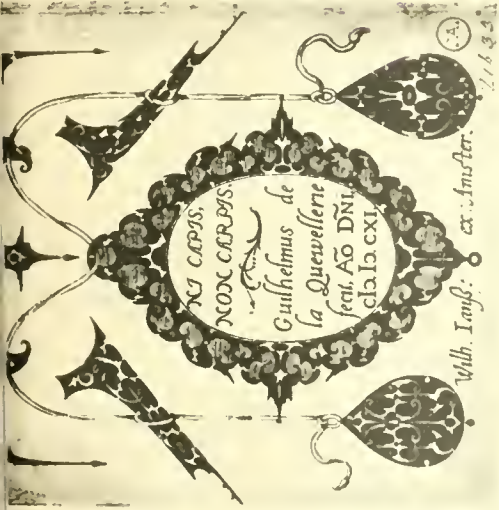 NI CAPIS,
NON CARPIS.
Guilhelmus de
la Quewellerie
fecit, Aō DN̄I.
cIɔ Iɔ. CXI.
Wilh. Ianß: ex: Amster.
.A.